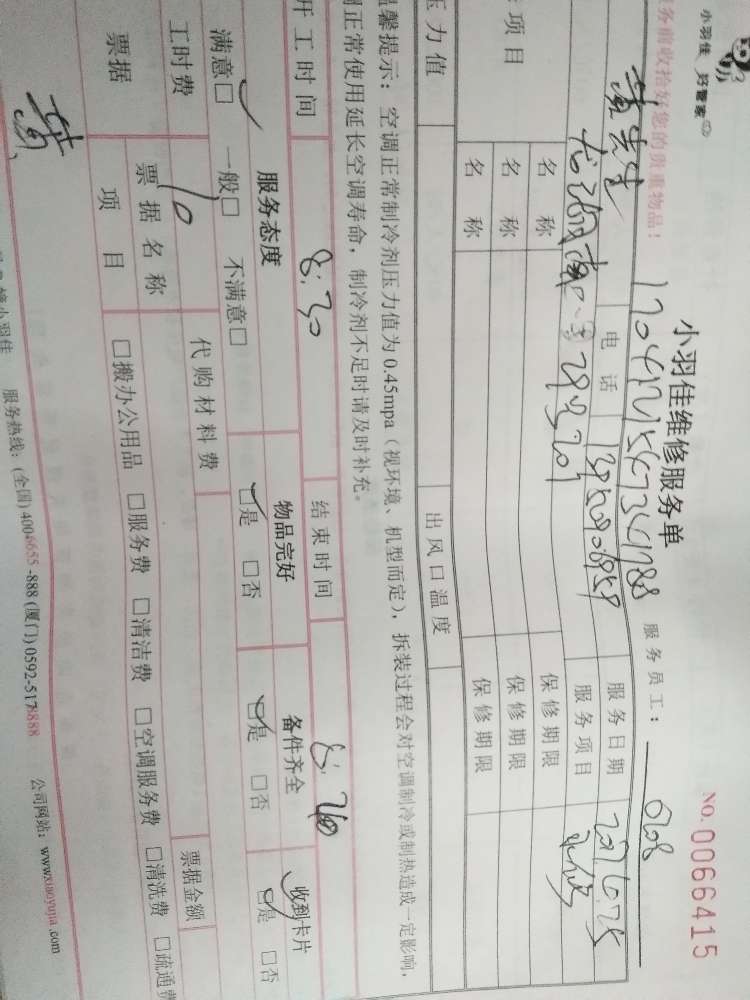 小羽佳 好管家
NO. 0066415
小羽佳维修服务单
务前收拾好您的贵重物品！
服务员工：
黄先生
电话
服务日期
服务项目
名称
保修期限
项目
名称
保修期限
名称
保修期限
压力值
出风口温度
馨提示：空调正常制冷剂压力值为0.45mpa（视环境、机型而定），拆装过程会对空调制冷或制热造成一定影响，
正常使用延长空调寿命，制冷剂不足时请及时补充。
开工时间 8:30 结束时间 8:40
服务态度 物品完好 备件齐全 收到卡片
满意□ 一般□ 不满意□ □是 □否 □是 □否 □是 □否
工时费 10 代购材料费
票据金额
票据 票据名称 项目
□搬办公用品 □服务费 □清洁费 □空调服务费 □清洗费 □疏通费
小羽佳 服务热线：(全国) 4006655-888 (厦门) 0592-5178888 公司网站：www.xiaoyujia.com